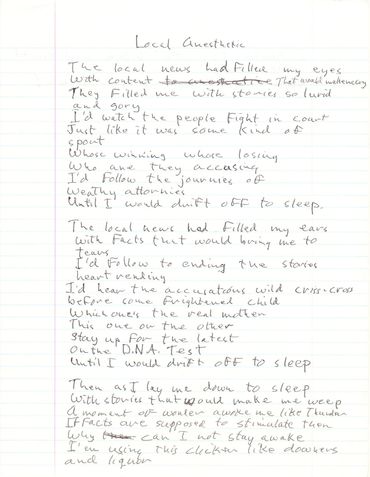 Local Anesthetic
The local news had filled my eyes
With content to anesthetize That avoid melancholy
They filled me with stories so lurid
and gory
I'd watch the people fight in court
Just like it was some kind of
sport
Whose winning whose losing
Who are they accusing
I'd follow the journies of
Weathy attornies
Until I would drift off to sleep.
The local news had filled my ears
With facts that would bring me to
tears
I'd follow to ending the stories
heart rending
I'd hear the accusations wild criss-cross
before some frightened child
Which one's the real mother
This one or the other
Stay up for the latest
On the D.N.A. Test
Until I would drift off to sleep
Then as I lay me down to sleep
With stories that would make me weep
A moment of wonder awoke me like thunder
If Facts are supposed to stimulate then
Why can I not stay awake
I'm using this chicken like downers
and liquor